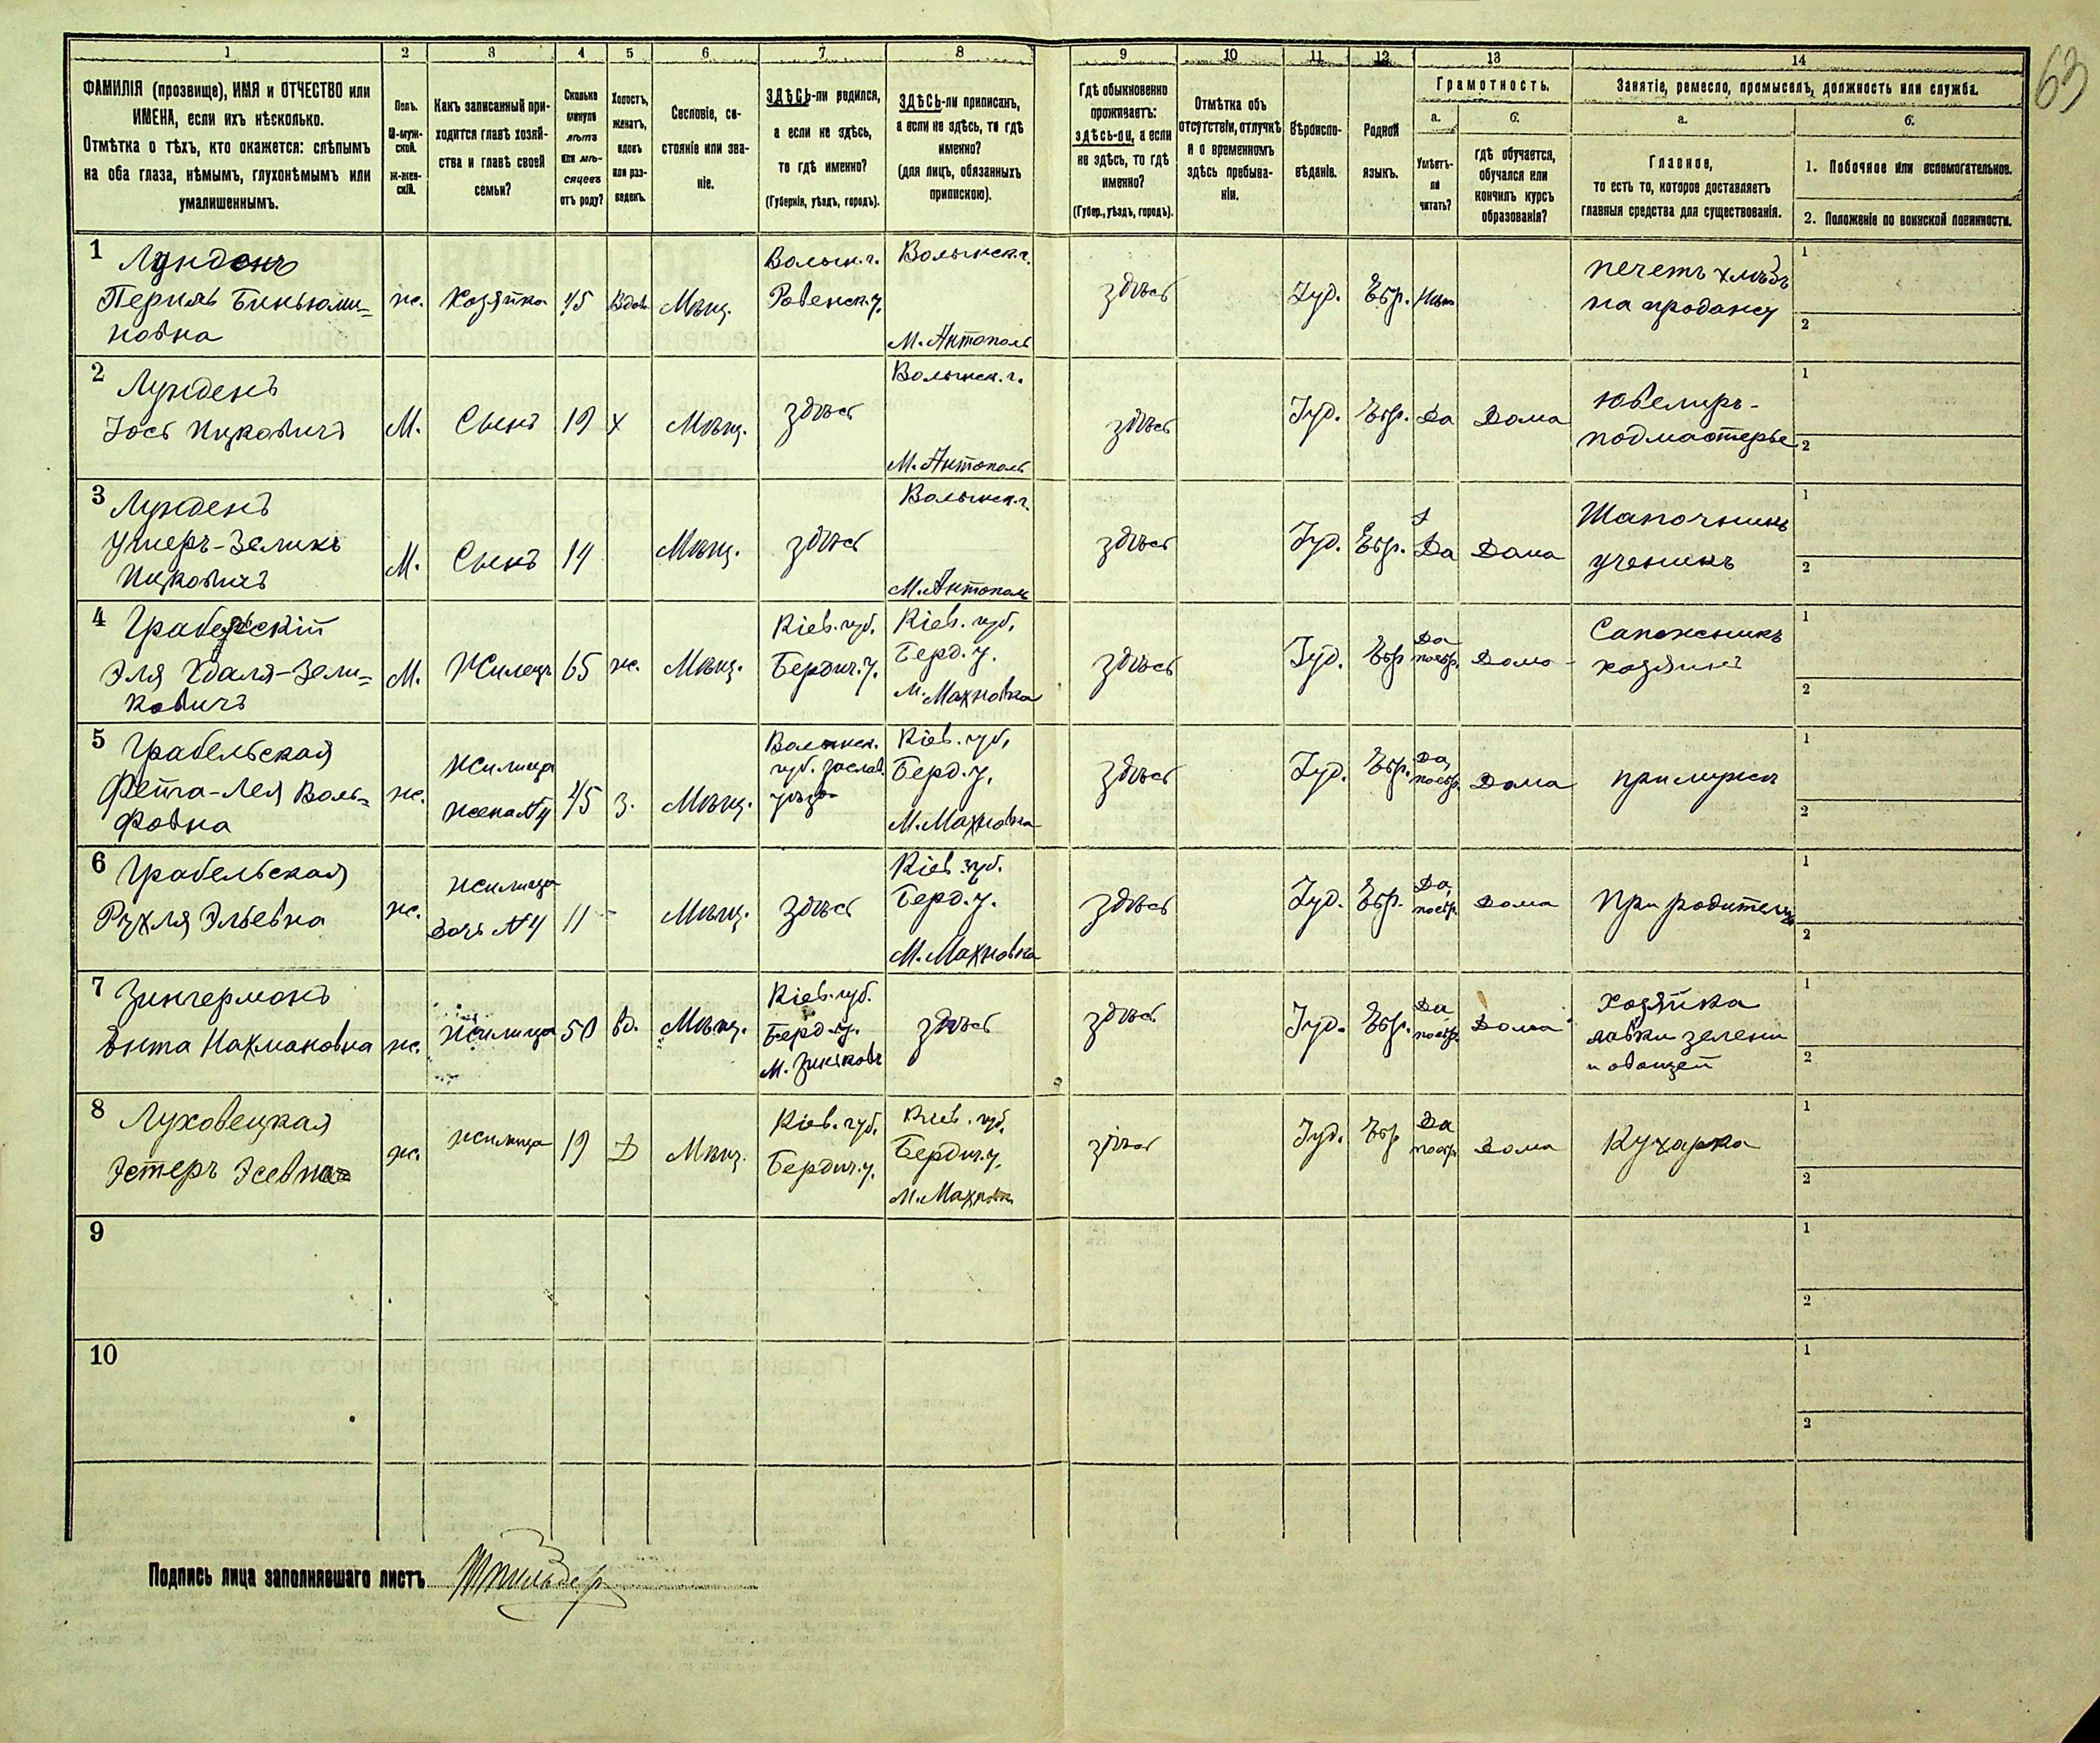 63
1 2 3 4 5 6 7 8 9 10 11 12 13 14
ФАМИЛІЯ (прозвище), ИМЯ и ОТЧЕСТВО или
ИМЕНА, если ихъ нѣсколько.
Отмѣтка о тѣхъ, кто окажется: слѣпымъ
на оба глаза, нѣмымъ, глухонѣмымъ или
умалишеннымъ.
Полъ.
М-муж-
ской.
Ж-жен-
скій.
Какъ записанный при-
ходится главѣ хозяй-
ства и главѣ своей
семьи?
Сколько
минуло
лѣтъ
или мѣ-
сяцевъ
отъ роду?
Холостъ,
женатъ,
вдовъ
или раз-
веденъ.
Сословіе, со-
стояніе или зва-
ніе.
ЗДѢСЬ-ли родился,
а если не здѣсь,
то гдѣ именно?
(Губернія, уѣздъ, городъ).
ЗДѢСЬ-ли приписанъ,
а если не здѣсь, то гдѣ
именно?
(для лицъ, обязанныхъ
припискою).
Гдѣ обыкновенно
проживаетъ:
здѣсь-ли, а если
не здѣсь, то гдѣ
именно?
(Губер., уѣздъ, городъ).
Отмѣтка объ
отсутствіи, отлучкѣ
и о временномъ
здѣсь пребыва-
ніи.
Вѣроиспо-
вѣданіе.
Родной
языкъ.
Грамотность.
а.
Умѣетъ-
ли
читать?
б.
гдѣ обучается,
обучался или
кончилъ курсъ
образованія?
Занятіе, ремесло, промыселъ, должность или служба.
а.
Главное,
то есть то, которое доставляетъ
главныя средства для существованія.
б.
1. Побочное или вспомогательное.
2. Положеніе по воинской повинности.
1 Лунденъ
Перихь Биньюми=
новна
ж.
Хозяйка
45
Вдова
Мѣщ.
Волын. г.
Ровенск. у.
Волынск. г.
М. Антополь
здѣсь
Іуд.
Евр.
Нѣтъ
печетъ хлѣбъ
на продажу
1
2
2 Лунденъ
Іось Ицковичъ
М.
Сынъ
19
х
Мѣщ.
здѣсь
Волынск. г.
М. Антополь
здѣсь
Іуд.
Евр.
Да
Дома
Ювелиръ-
подмастерье
1
2
3 Лунденъ
Ушеръ-Зеликъ
Ицковичъ
М.
Сынъ
14
Мѣщ.
здѣсь
Волынск. г.
М. Антополь
здѣсь
Іуд.
Евр.
Да
Дома
Шапочникъ
ученикъ
1
2
4 Грабельскій
Эля Удаля-Зели=
ковичъ
М.
Жилецъ
65
ж.
Мѣщ.
Кіев. губ.
Бердич. у.
Кіев. губ.
Берд. у.
м. Махновка
здѣсь
Іуд.
Евр.
Да
поевр.
Дома
Сапожникъ
хозяинъ
1
2
5 Грабельская
Фейга-Лея Воль=
фовна
ж.
Жилица
жена N 4
45
З.
Мѣщ.
Волынск.
губ. Заслав.
уѣзд.
Кіев. губ.
Берд. у.
М. Махновка
здѣсь
Іуд.
Евр.
Да,
поевр.
Дома
при мужѣ
1
2
6 Грабельская
Рухля Эльевна
ж.
Жилица
дочь N 4
11
-
Мѣщ.
здѣсь
Кіев. губ.
Берд. у.
М. Махновка
здѣсь
Іуд.
Евр.
Да,
поевр.
Дома
При родителяхъ
1
2
7 Зингерманъ
Энта Нахмановна
ж.
Жилица
50
вд.
Мѣщ.
Кіев. губ.
Берд. у.
М. Зиньковъ
здѣсь
здѣсь
Іуд.
Евр.
Да
поевр.
Дома
Хозяйка
лавки зелени
и овощей
1
2
8 Луховецкая
Эстеръ Эсевна
ж.
жилица
19
Д
Мѣщ.
Кіев. губ.
Бердич. у.
Кіев. губ.
Бердич. у.
М. Махновк
здѣсь
Іуд.
Евр
Да
поевр
Дома
Кухарка
1
2
9
1
2
10
1
2
Подпись лица заполнявшаго листъ